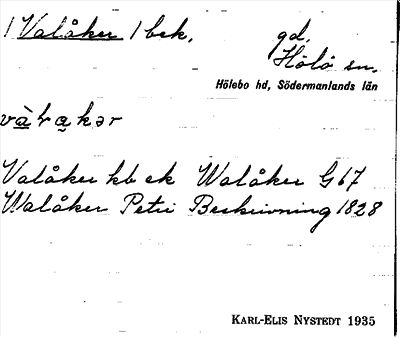 1 Valåker 1 bek. gd.
Hölö sn.
Hölebo hd, Södermanlands län
Valåker kb ek Walåker G 67
Walåker Petri Beskrivning 1828
KARL-ELIS NYSTEDT 1935